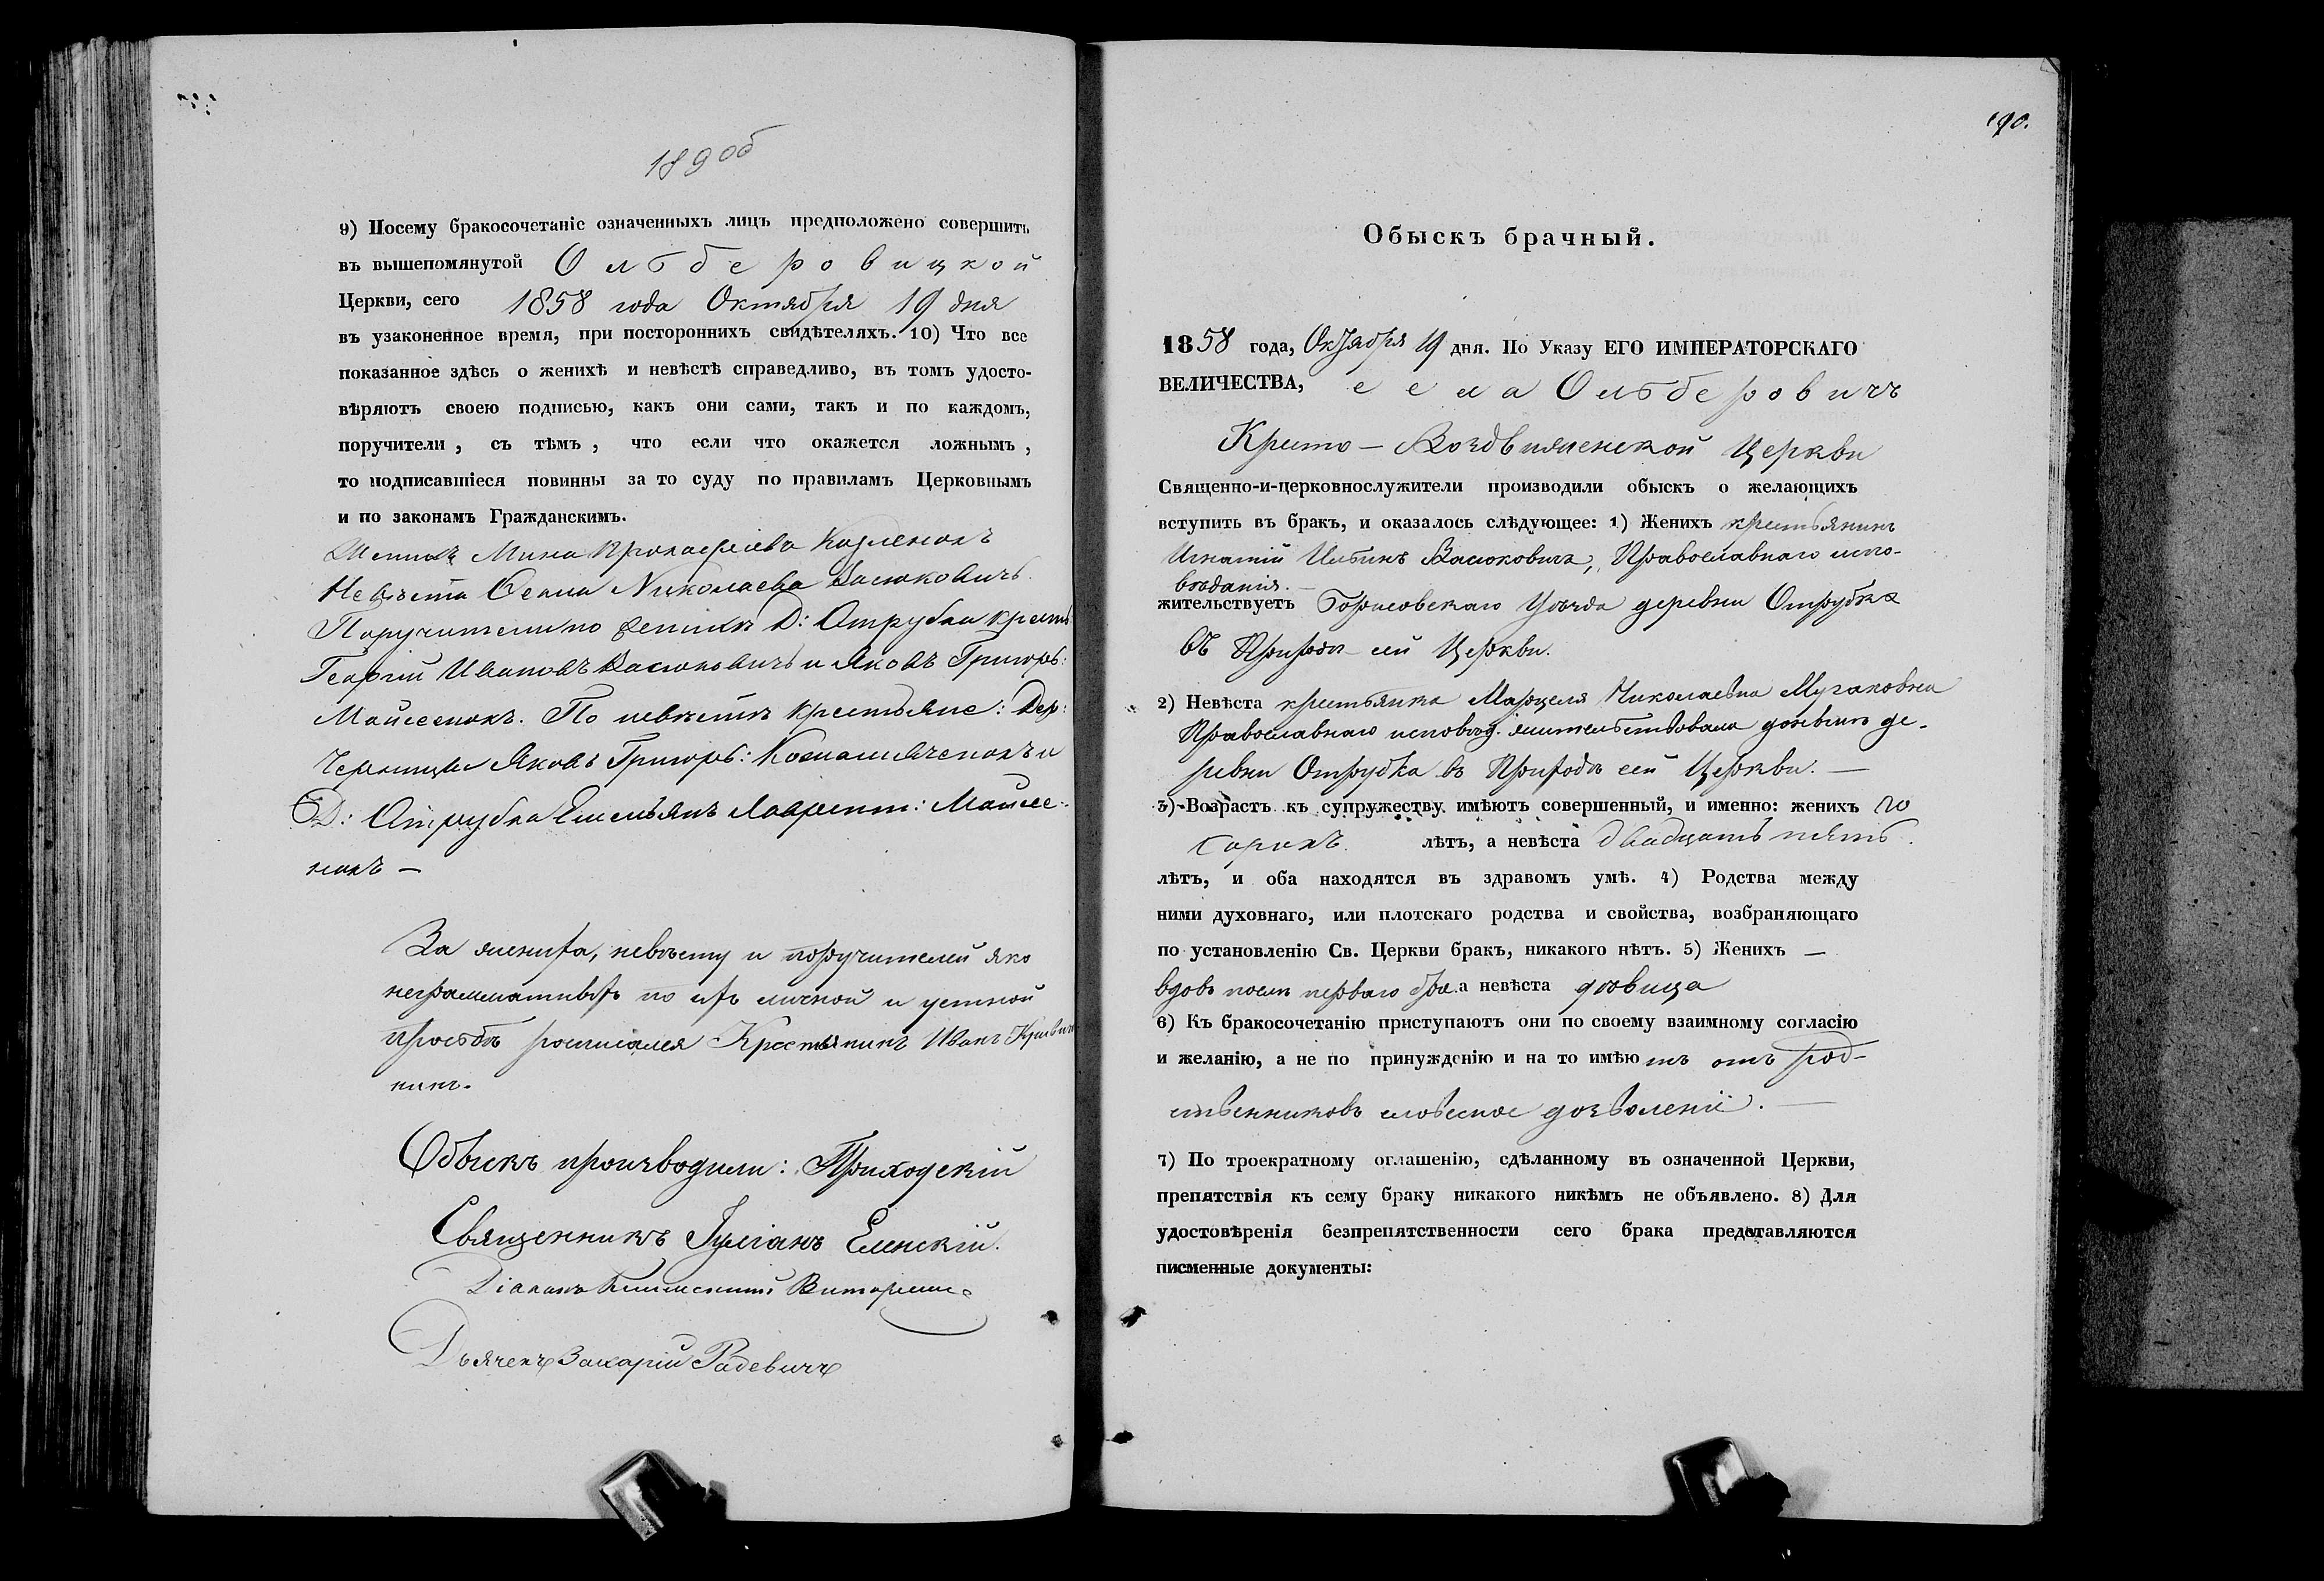 189 об
9) Посему бракосочетаніе означенныхъ лицъ предположено совершить
въ вышепомянутой Ольберовицкой
Церкви, сего 1858 года Октября 19 дня
въ узаконенное время, при постороннихъ свидѣтеляхъ. 10) Что все
показанное здѣсь о женихѣ и невѣстѣ справедливо, въ томъ удосто-
вѣряютъ своею подписью, какъ они сами, такъ и по каждомъ,
поручители, съ тѣмъ, что если что окажется ложнымъ,
то подписавшіеся повинны за то суду по правиламъ Церковнымъ
и по законамъ Гражданскимъ.
Женихъ Мина Козленокъ
Невѣста Николаева Васюковичъ.
Поручители по женихѣ Д: Отрубка крест:
Георгій Ивановъ Васюковичъ и Яковъ Григорь:
Майсенокъ. По невѣстѣ крестьяне: Дер:
Черницы Яковъ Григорь: и
Д: Отрубка Емельянъ Лаврент: Майсе-
нокъ —
За жениха, невѣсту и поручителей яко
неграматныхъ по ихъ личной и устной
прозьбѣ росписался Крестьянинъ Иванъ
никъ.
Обыскъ производили: Приходскій
Священникъ Іуліанъ Еленскій.
Діаконъ
Дьячекъ Захарій Радевичъ
190.
Обыскъ брачный.
1858 года, Октября 19 дня. По Указу ЕГО ИМПЕРАТОРСКАГО
ВЕЛИЧЕСТВА, села Ольберовичъ
Кресто-Воздвиженской Церкви
Священно-и-церковнослужители производили обыскъ о желающихъ
вступить въ бракъ, и оказалось слѣдующее: 1) Женихъ крестьянинъ
Игнатій Ильинъ Васюковичъ, Православнаго испо-
вѣданія. —
жительствуетъ Борисовскаго Уѣзда деревни Отрубка
въ Приходѣ сей Церкви.
2) Невѣста крестьянка Марцеля Николаевна
Православнаго исповѣд. жительствовала донынѣ де-
ревни Отрубка въ Приходѣ сей Церкви. —
3) Возрастъ къ супружеству имѣютъ совершенный, и именно: женихъ
сорокъ. лѣтъ, а невѣста двадцать пять.
лѣтъ, и оба находятся въ здравомъ умѣ. 4) Родства между
ними духовнаго, или плотскаго родства и свойства, возбраняющаго
по установленію Св. Церкви бракъ, никакого нѣтъ. 5) Женихъ —
вдовъ послѣ перваго бра. а невѣста дѣвица
6) Къ бракосочетанію приступаютъ они по своему взаимному согласію
и желанію, а не по принужденію и на то имѣютъ отъ род-
ственниковъ словесное дозволеніе. —
7) По троекратному оглашенію, сдѣланному въ означенной Церкви,
препятствія къ сему браку никакого никѣмъ не объявлено. 8) Для
удостовѣренія безпрепятственности сего брака представляются
писменные документы: